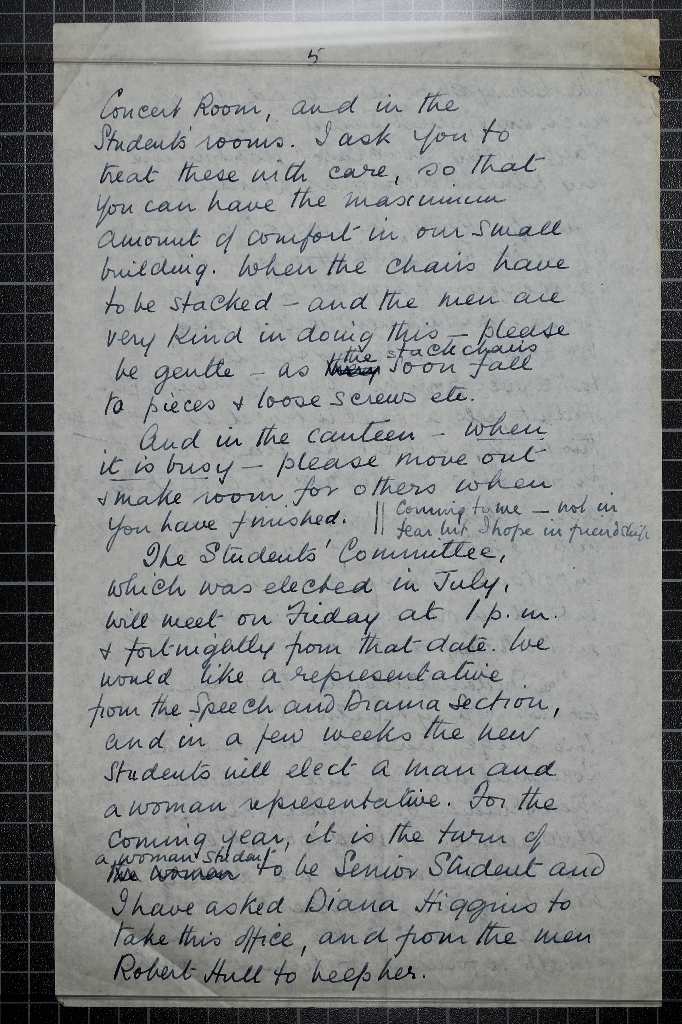 5
Concert Room, and in the
Students' rooms. I ask you to
treat these with care, so that
you can have the maximum
amount of comfort in our small
building. When the chairs have
to be stacked – and the men are
very kind in doing this – please
the stackchairs
be gentle – as they soon fall
to pieces & loose screws etc.
And in the canteen – when
it is busy – please move out
& make room for others when
you have finished. || Coming to me – not in
fear but I hope in friendship
The Students' Committee,
which was elected in July,
will meet on Friday at 1 p.m.
& fortnightly from that date. We
would like a representative
from the Speech and Drama section,
and in a few weeks the new
Students will elect a man and
a woman representative. For the
coming year, it is the turn of
a woman student
the woman to be Senior Student and
I have asked Diana Higgins to
take this office, and from the men
Robert Hull to help her.